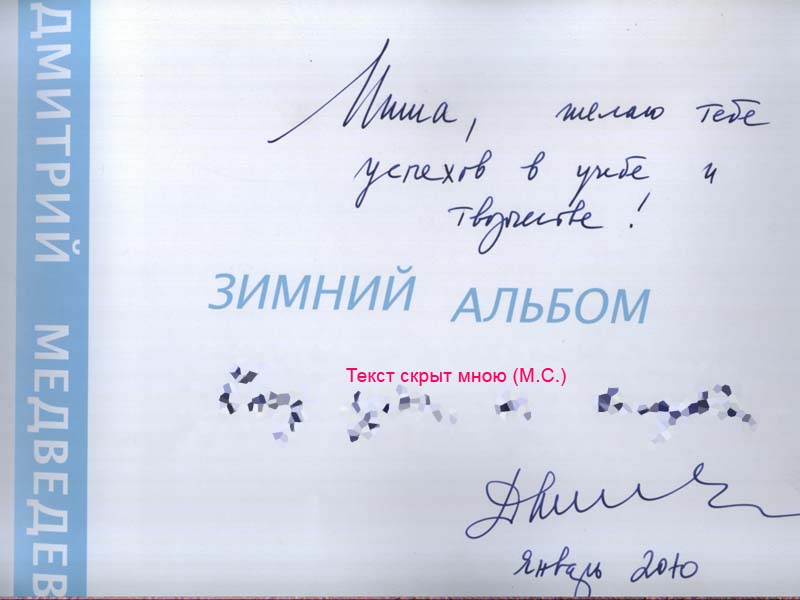 ДМИТРИЙ МЕДВЕДЕВ
Миша, желаю тебе
успехов в учебе и
творчестве!
ЗИМНИЙ АЛЬБОМ
Текст скрыт мною (М.С.)
Январь 2010